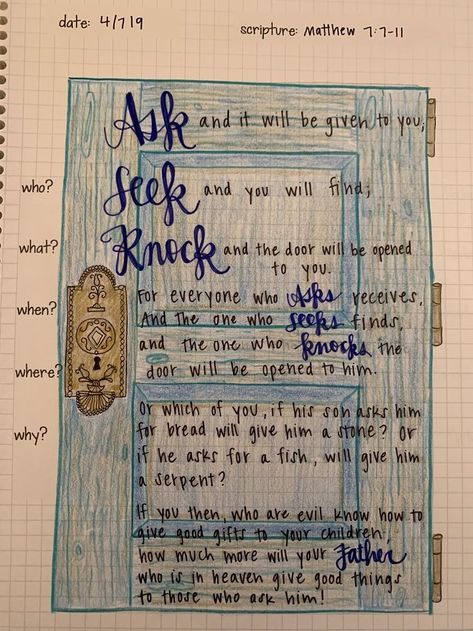 date: 4/7/19
scripture: Matthew 7:7-11
Ask and it will be given to you;
who?
Seek and you will find;
what?
Knock and the door will be opened
to you.
For everyone who Asks receives,
when?
And the one who seeks finds,
and the one who knocks the
where?
door will be opened to him.
Or which of you, if his son asks him
why?
for bread will give him a stone? Or
if he asks for a fish, will give him
a serpent?
If you then, who are evil know how to
give good gifts to your children,
how much more will your Father
who is in heaven give good things
to those who ask him!